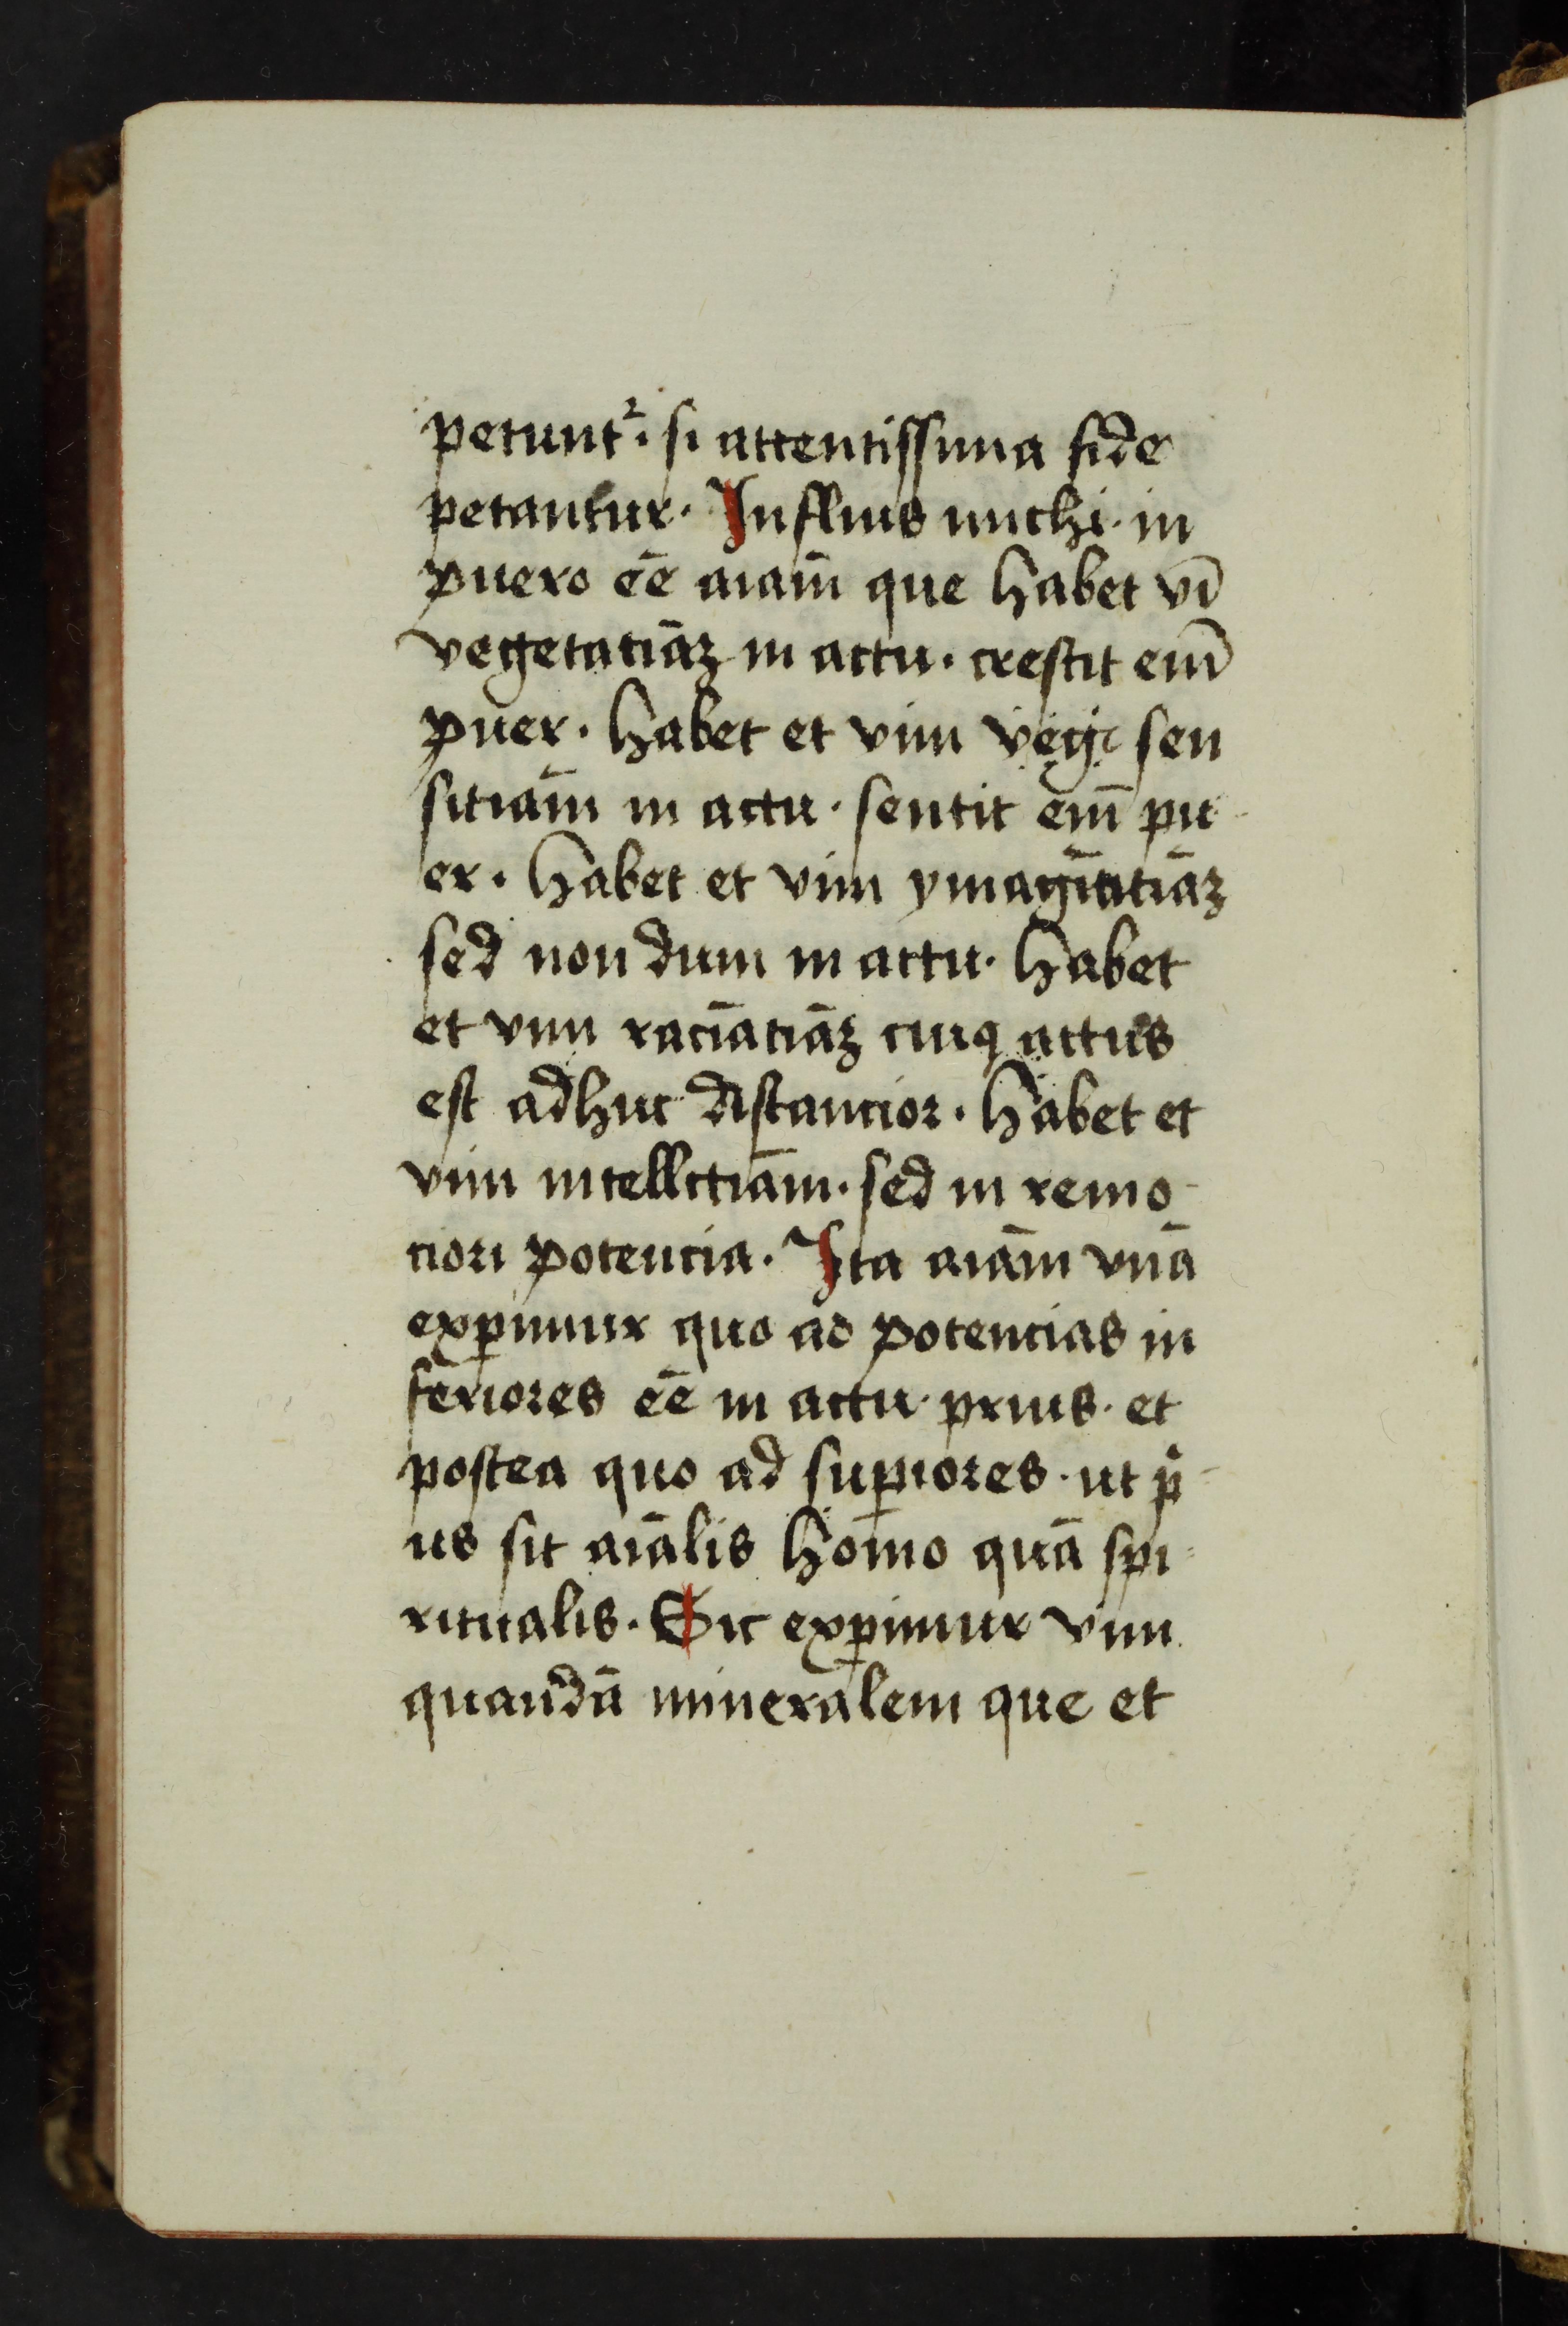 petunt᷑· si attentissima fide
petantur· Influis michi· in
puero ēē aiam̄ que habet vī
vegetatiāꝫ in actu· crescit eni᷑
puer· habet et vim vege sen
sitiām in actu· sentit em̄ pu
er· habet et vim ymagi̅atiāꝫ
sed non dum in actu· habet
et vim raci̅atiāꝫ cuiꝯ actus
est adhuc distancior· habet et
vim intellctiām· sed in remo-
ciori potencia· Ita aiām vnā
exꝑimur quo ad potencias in
feriores ēē in actu prius· et
postea quo ad suꝑiores· ut pͥ-
us sit aiālis homo quā spi-
ritualis· Sic exꝑimur vim
quandā mineralem que et